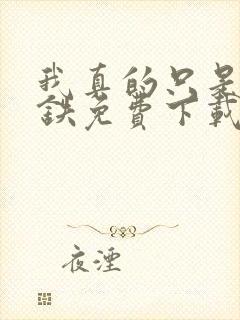 我真的只是
鉄免费下载
夜湮